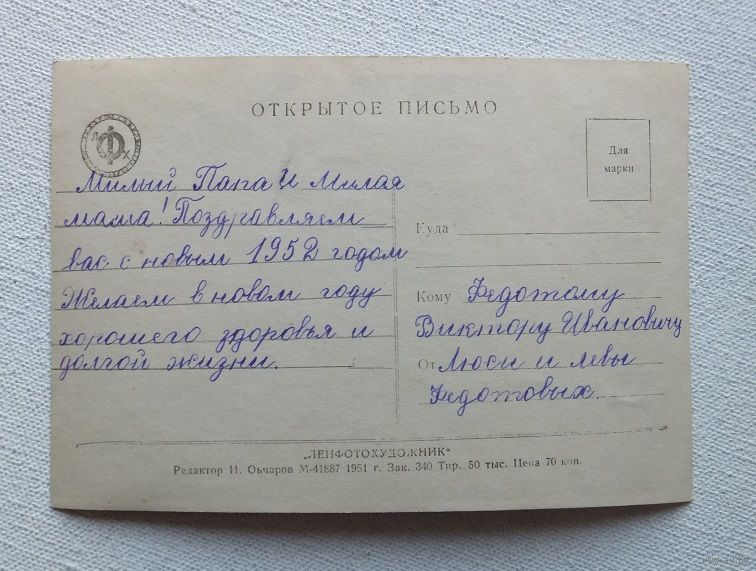 ОТКРЫТОЕ ПИСЬМО
Л Ф Х
Для
марки
Милый Папа и милая
мама! Поздравляем
вас с новым 1952 годом
Желаем в новом году
хорошего здоровья и
долгой жизни.
Куда
Кому Федотому
Виктору Ивановичу
От Люси и левы
Федотовых.
„ЛЕНФОТОХУДОЖНИК“
Редактор И. Овчаров М-41887 1951 г. Зак. 340 Тир. 50 тыс. Цена 70 коп.